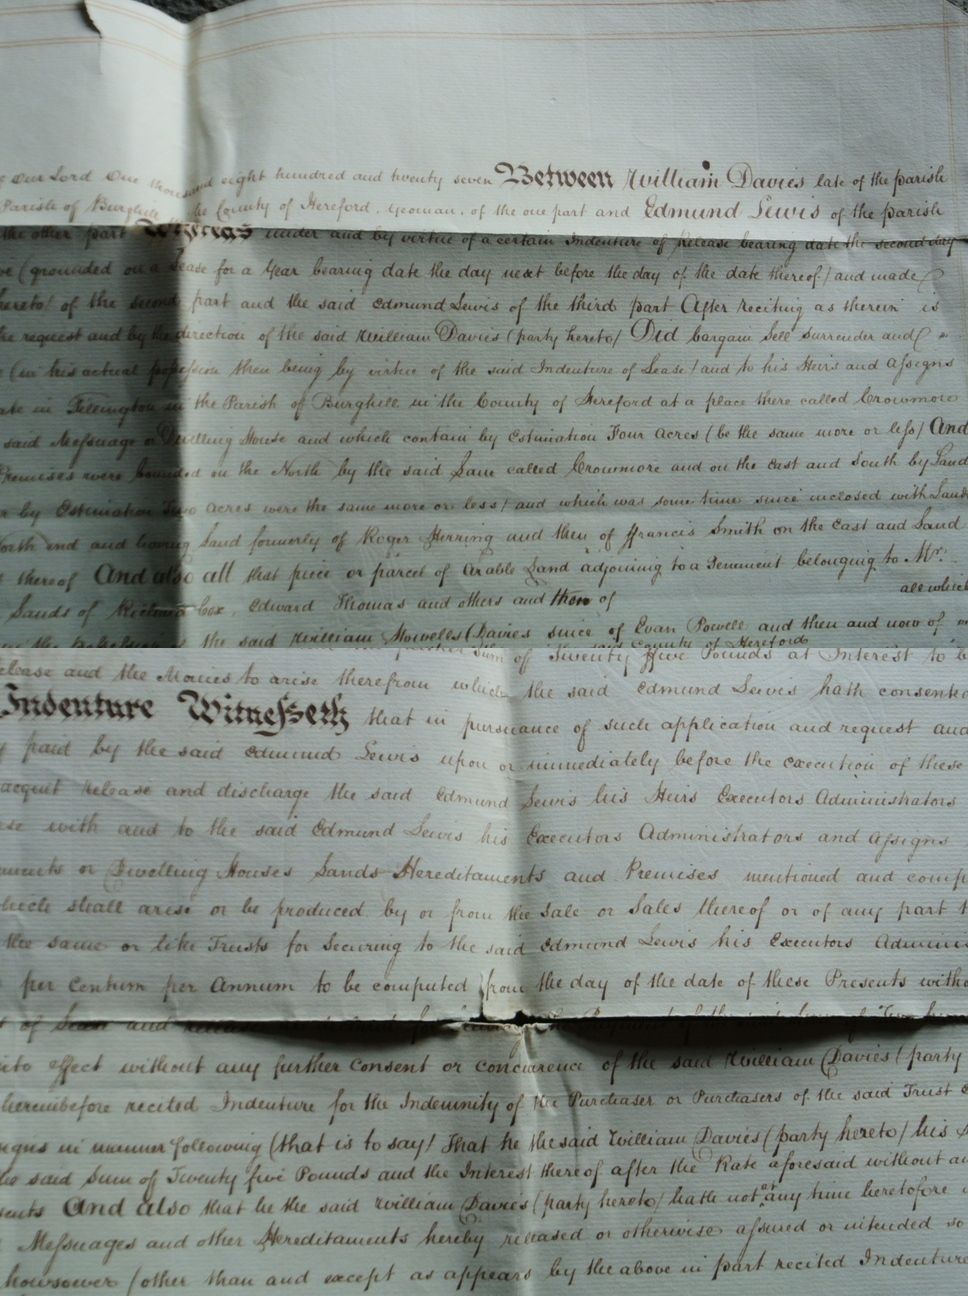 our Lord One thousand eight hundred and twenty seven Between William Davies late of the parish
Parish of Burghill the County of Hereford, yeoman, of the one part and Edmund Lewis of the parish
the other part Whereas under and by virtue of a certain Indenture of Release bearing date the second day
(grounded on a Lease for a Year bearing date the day next before the day of the date thereof) and made
hereto) of the second part and the said Edmund Lewis of the third part After reciting as therein is
the request and by the direction of the said William Davies (party hereto) Did bargain Sell surrender and
(in his actual possession then being by virtue of the said Indenture of Lease) and to his Heirs and Assigns
in Tillington in the Parish of Burghill in the County of Hereford at a place there called Crowmore
said Messuage or Dwelling House and which contain by Estimation Four Acres (be the same more or less) And
Premises were bounded on the North by the said Lane called Crowmore and on the East and South by Land
by Estimation Two acres were the same more or less) and which was some time since inclosed with Lands
North end and having Land formerly of Roger Herring and then of Francis Smith on the East and Land
thereof And also all that piece or parcel of Arable Land adjoining to a Tenement belonging to Mr.
Lands of Cox, Edward Thomas and others and then of all which
the said William Howells Davies since of Evan Powell and then and now of
said County of Hereford
sum of Twenty Five Pounds at Interest to be
Release and the Monies to arise therefrom which the said Edmund Lewis hath consented
Indenture Witnesseth that in pursuance of such application and request and
paid by the said Edmund Lewis upon or immediately before the execution of these
acquit release and discharge the said Edmund Lewis his Heirs Executors Administrators
with and to the said Edmund Lewis his Executors Administrators and Assigns
or Dwelling Houses Lands Hereditaments and Premises mentioned and
which shall arise or be produced by or from the Sale or Sales thereof or of any part
the same or like Trusts for Securing to the said Edmund Lewis his Executors
per Centum per Annum to be computed from the day of the date of these Presents
of and
into effect without any further Consent or concurrence of the said William Davies (party
hereinbefore recited Indenture for the Indemnity of the Purchaser or Purchasers of the said Trust
in manner following (that is to say) That he the said William Davies (party hereto) his
said Sum of Twenty five Pounds and the Interest thereof after the Rate aforesaid without
And also that he the said William Davies (party hereto) hath not at any time heretofore
Messuages and other Hereditaments hereby released or otherwise assured or intended so
howsoever (other than and except as appears by the above in part recited Indenture